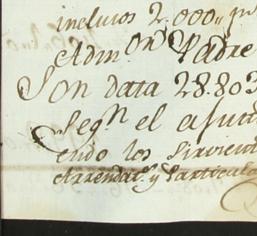 inclusos 2.000,,
Adm.on Padre
Son data 28.803
Segn el
tudo los Sirvient
Arrendats. y Particula